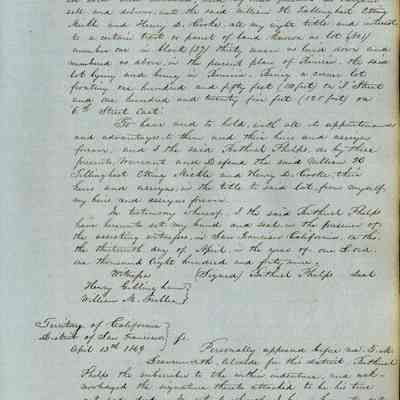 sell and deliver, unto the said William H. Tillinghast, Otting
Mickle and Henry D. Cooke, all my right title and interest
to a certain tract or parcel of land known as lot (No)
number one in block (37) thirty seven as laid down and
numbered as above, in the present plan of Benicia. The said
lot lying and being in Benicia. Being a corner lot
fronting one hundred and fifty feet (150 feet) on I Street
and one hundred and twenty five feet (125 feet) on
6th Street East.
To have and to hold, with all its appurtenances
and advantages, to them and their heirs and assigns
forever, and I the said Bethuel Phelps, do by these
presents, Warrant and Defend the said William H
Tillinghast Otting Mickle and Henry D. Cooke, their
heirs and assigns, in the title to said lot, from myself,
my heirs and assigns forever.
In testimony whereof, I the said Bethuel Phelps
have hereunto set my hand and seal in the presence of
the assisting witnesses, in San Francisco California, on this
the thirteenth day of April in the year of our Lord
one thousand eight hundred and forty nine.
Witnesses (Signed) Bethuel Phelps seal
Henry
William M.
Territory of California
District of San Francisco } ss.
April 13th 1849 Personally appeared before me
Leavenworth, Alcalde for this district, Bethuel
Phelps the subscriber to the within indenture, and ack-
nowledged the signature thereto attached to be his true